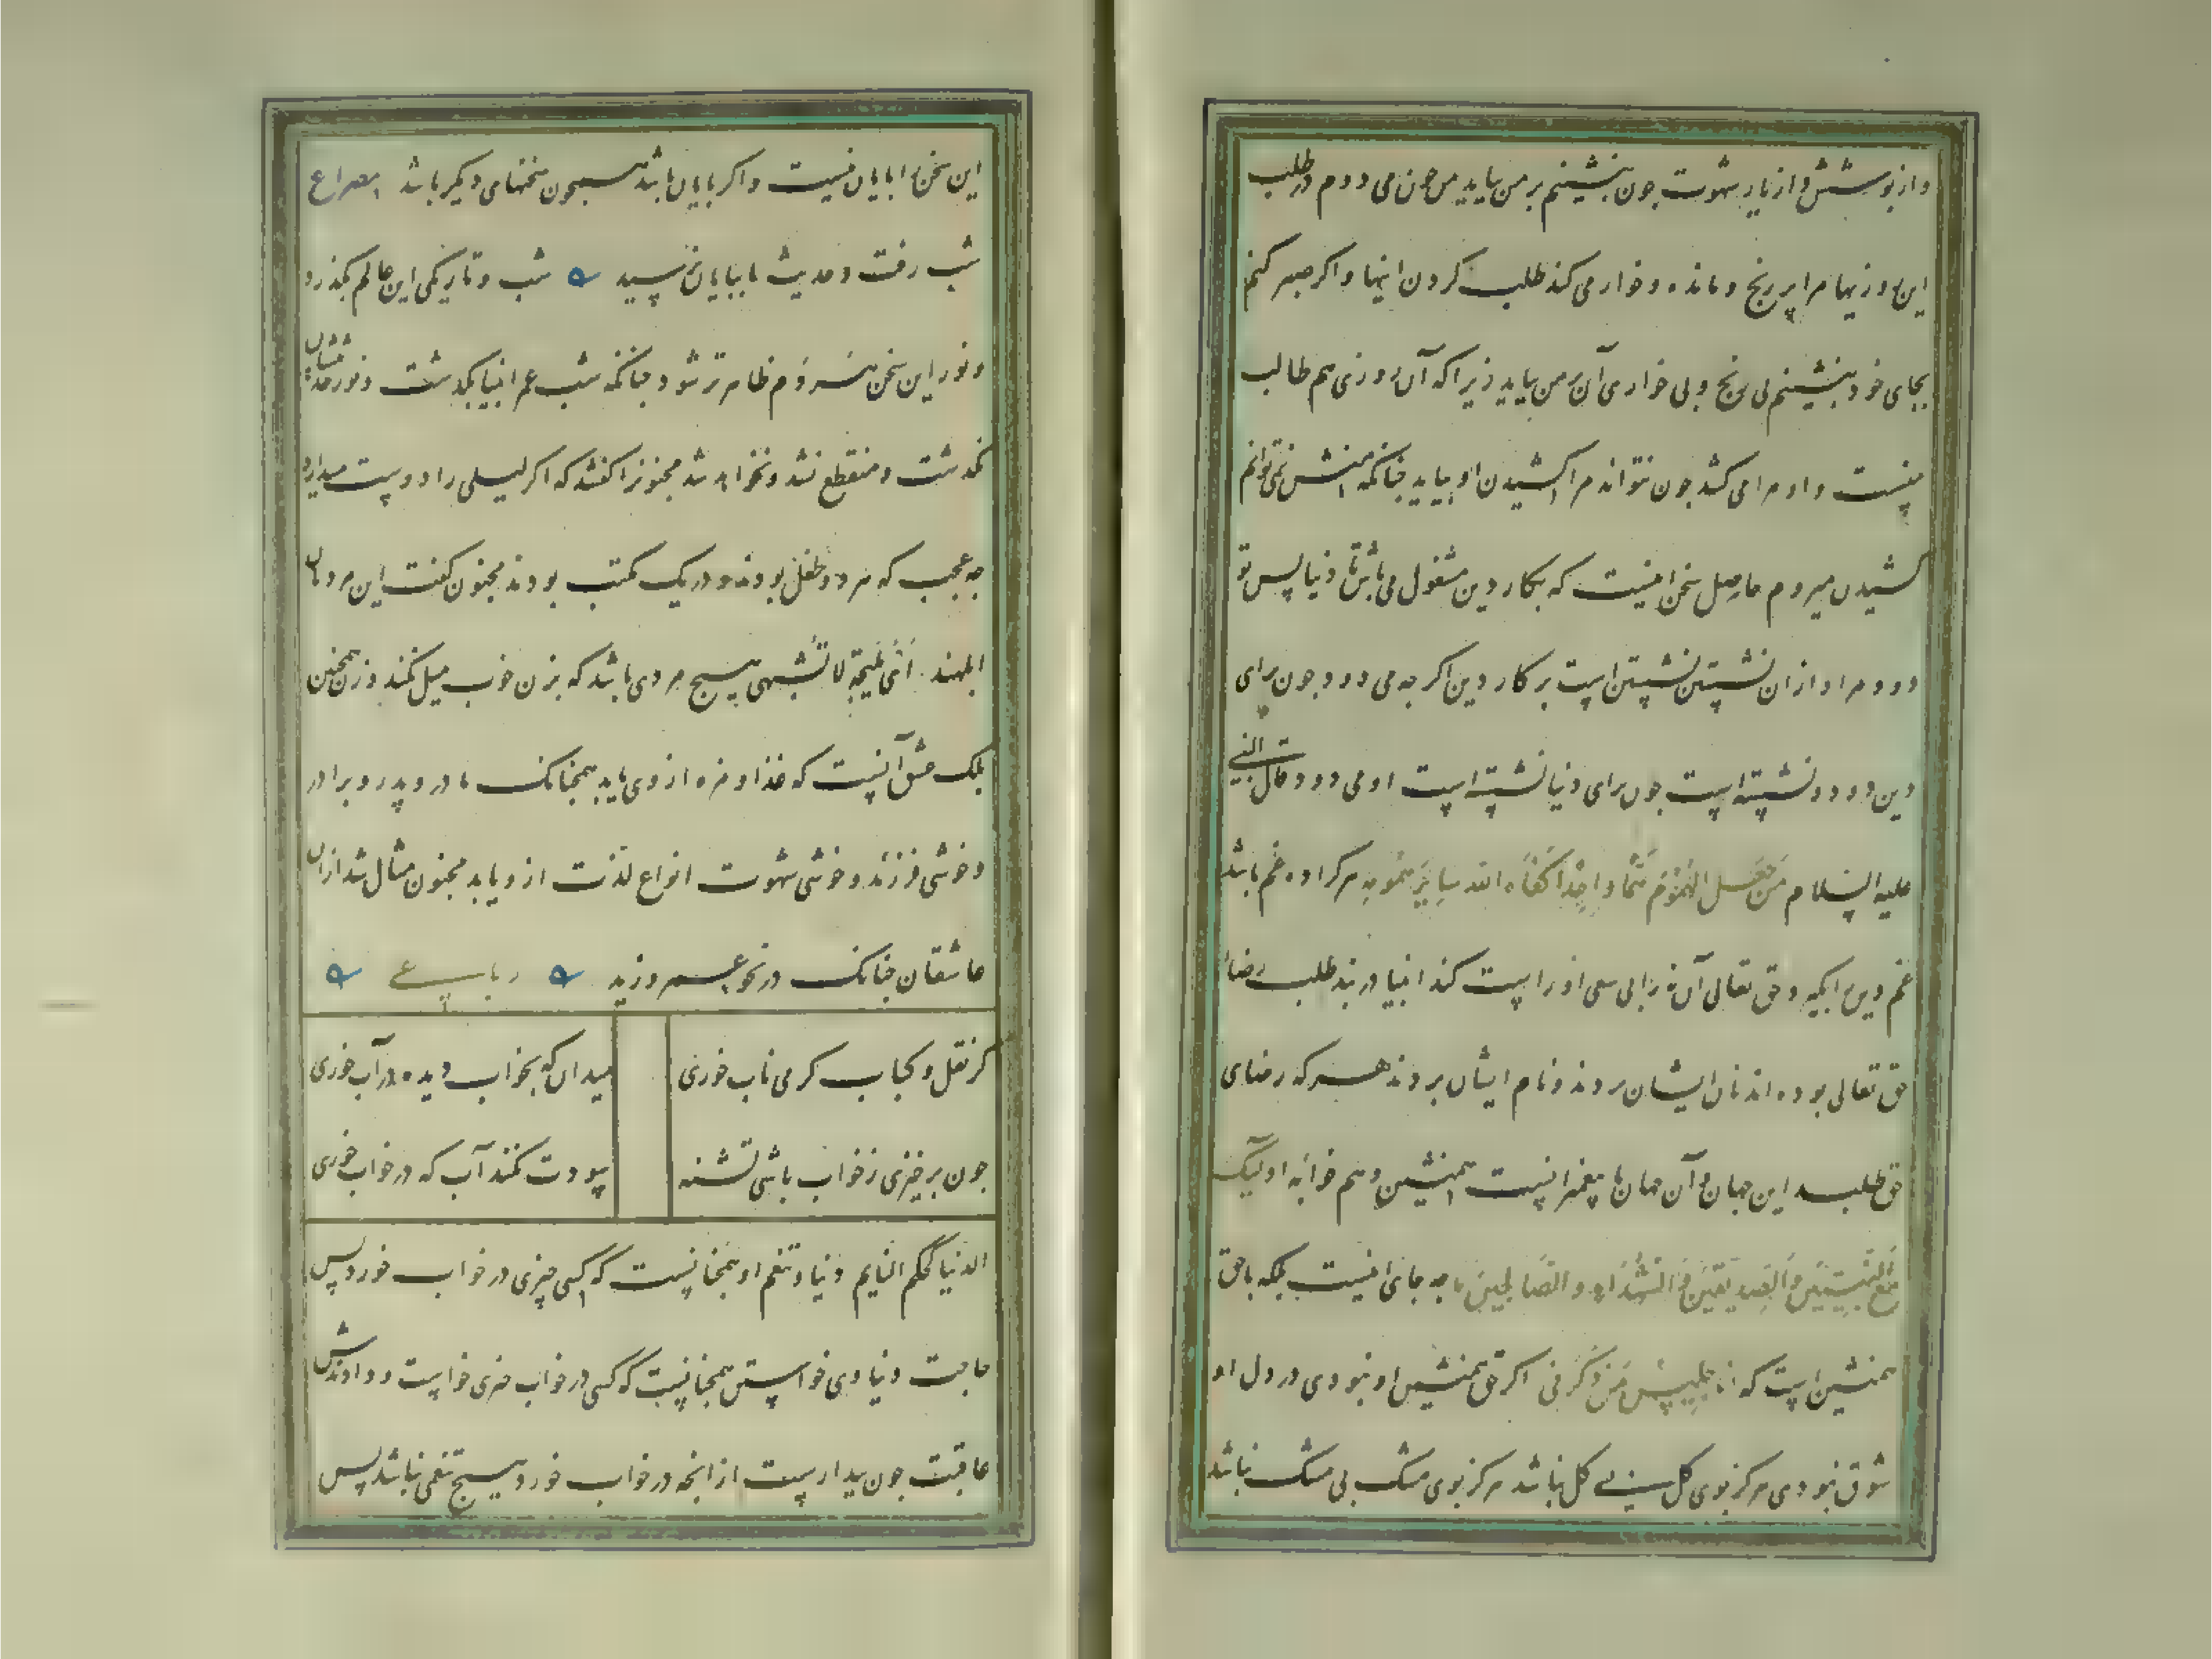 و از پوشش و از نار شهوت چون بنشینم بر من بیاید من چون می دوم در طلب
این روزیها مرا پر رنج و مانده و خوار می کند طلب کردن اینها و اگر صبر کنم
بجای خود بنشینم بی رنج و بی خواری آن بر من بیاید زیرا که آن روزی هم طالب
منست و او مرا می کشد چون نتواند مرا کشیدن او بیاید چنانکه منش نمی توانم
کشیدن میروم حاصل سخن اینست که بکار دین مشغول می باش تا دنیا پس تو
دود مراد ازان نشستن نشستن است بر کار دین اگر چه می دود چون برای
دین دود نشسته است چون برای دنیا نشسته است او می دود قال النبی
علیه السلام مَن جَعَل الهُمُومَ هَمًّا واحِدًا کَفَاه الله سایِرَ هُمُومِه هر کرا ده غم باشد
غم دین را بگیرد حق تعالی آن نه را بی سعی او راست کند انبیا در بند طلب رضاء
حق تعالی بوده اند نان ایشان بردند و نام ایشان بردند هر که رضای
حق طلبد این جهان و آن جهان با پیغمبرانست همنشین و هم خوابه اولیک
مَعَ النَبِیّینَ وَالصِدیقینَ وَ الشُهَداءِ و الصَالِحینَ ما چه جای اینست بلکه باحق
همنشین است که انا جَلِیسُ مَن ذَکَرنی اگر حق همنشین او نبودی در دل او
شوق نبودی هرگز بوی گل بی گل نباشد هرگز بوی مشک بی مشک نباشد
این سخن را پایان نیست و اگر پایان باشد همچون سخنهای دیگر باشد مصراع
شب رفت و حدیث ما بپایان نرسید شب و تاریکی این عالم بگذرد
و نور این سخن هر دم ظاهر تر شود چنانکه شب عمر انبیا بگذشت و نور حدیثشان
نگذشت و منقطع نشد و نخواهد شد مجنون را گفتند که اگر لیلی را دوست میدارد
چه عجب که هر دو طفل بودند و در یک مکتب بودند مجنون گفت این مردمان
ابلهند اَیُّ مَلیحَةٍ لا تُشتَهی هیچ مردی باشد که بزن خوب میل نکند و زن همچنین
بلک عشق آنست که غذا و مزه از وی یابد همچنانک مادر و پدر و برادر
و خوشی فرزند و خوشی شهوت انواع لذت ازو یابد مجنون مثال شد ازان
عاشقان چنانک در نحو عمرو و زید رباعی
گر نقل و کباب گر می ناب خوری میدان که بخواب دیده در آب خوری
چون برخیزی زخواب باشی تشنه سودت نکند آب که در خواب خوری
الدنیا کحُلم النایم دنیا و تنعم او همچنانست که کسی چیزی در خواب خورد پس
حاجت دنیاوی خواستن همچنانست که کسی در خواب چیزی خواست و دادندش
عاقبت چون بیداریست از آنچه در خواب خورد هیچ نفعی نباشد پس